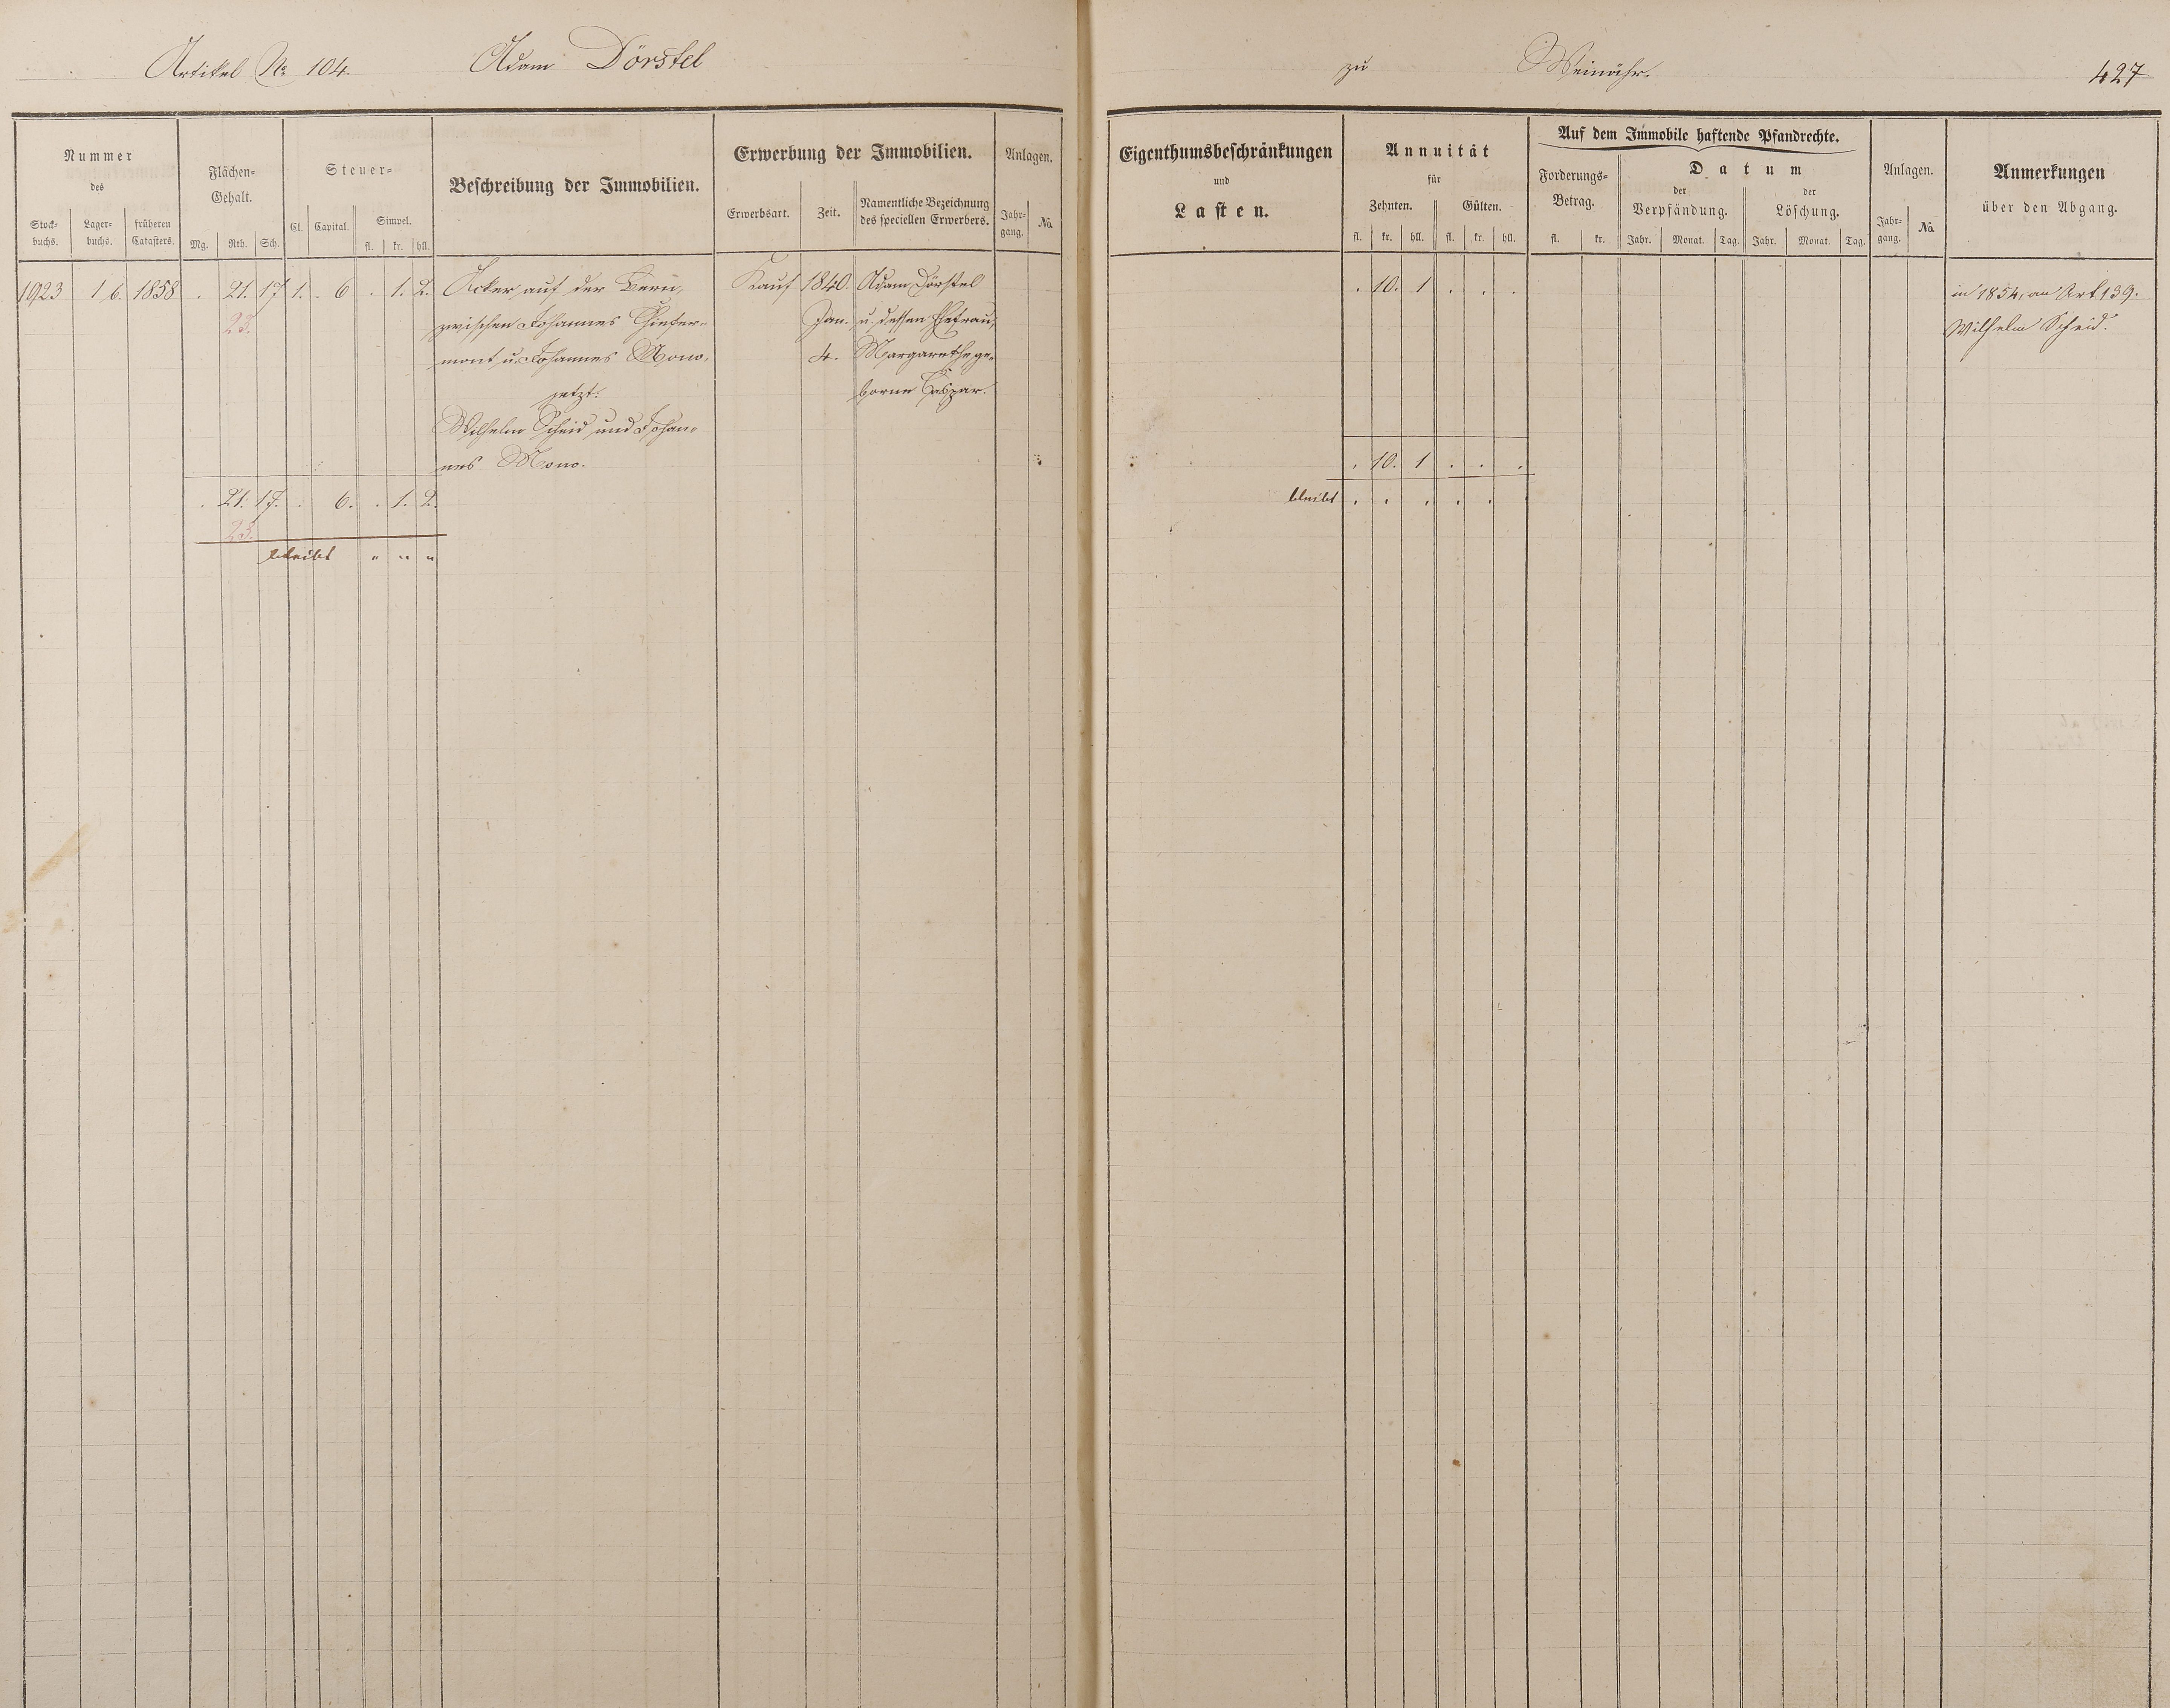 Artikel No 104. Adam Dörstel
zu Weinähr. 427
Nummer
des
Stock-
buchs.
Lager-
buchs.
früheren
Catasters.
Flächen-
Gehalt.
Mg. Rth. Sch.
Steuer-
Cl. Capital. Simpel.
fl. kr. hll.
Beschreibung der Immobilien.
Erwerbung der Immobilien.
Erwerbsart. Zeit. Namentliche Bezeichnung
des speciellen Erwerbers.
Anlagen.
Jahr-
gang.
No.
Eigenthumsbeschränkungen
und
Lasten.
Annuität
für
Zehnten. Gülten.
fl. kr. hll. fl. kr. hll.
Auf dem Immobile haftende Pfandrechte.
Forderungs-
Betrag.
fl. kr.
Datum
der
Verpfändung.
der
Löschung.
Jahr. Monat. Tag. Jahr. Monat. Tag.
Anlagen.
Jahr-
gang.
No.
Anmerkungen
über den Abgang.
1923 16 1858 . 21. 17 1. . 6 . 1. 2.
23.
Acker auf der
zwischen Johannes
mont u. Johannes Mono.
jetzt:
Wilhelm Scheid und Johan-
nes Mono.
Kauf 1840.
Jan.
4.
Adam Dörstel
u. dessen Ehefrau,
Margarethe ge-
borne Caspar.
. 10. 1 . . .
in 1854, an Art. 139.
Wilhelm Scheid.
. 10. 1 . . .
bleibt . . . . . .
. 21. 17. . 6. . 1. 2.
23.
bleibt " " "